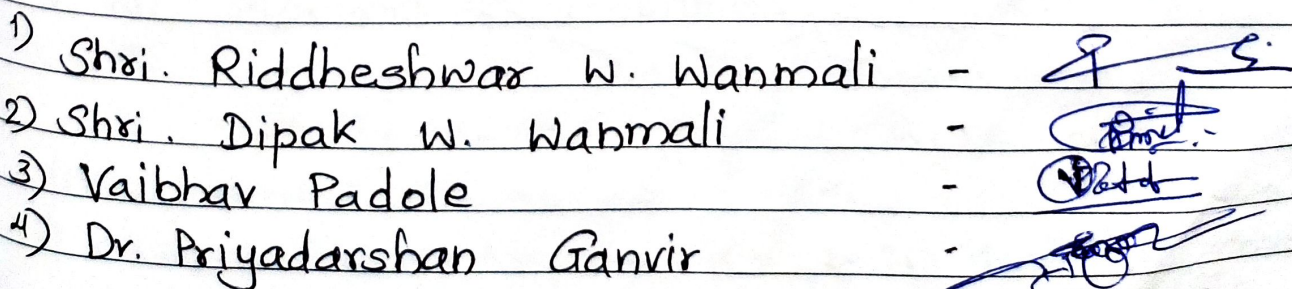 1) Shri. Riddheshwar W. Wanmali -
2) Shri. Dipak W. Wanmali -
3) Vaibhav Padole -
4) Dr. Priyadarshan Ganvir -